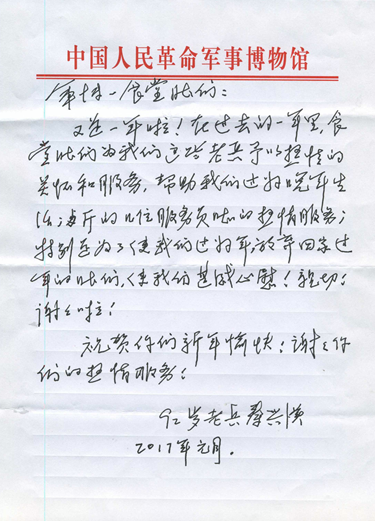 中国人民革命军事博物馆
军博一食堂的同志们：
又是一年啦！在过去的一年里，食
堂的同志们为我们这些老兵予以热情的
关怀和服务，帮助我们过好晚年生
活；餐厅的几位服务员的热情服务；
特别是为了使我们过好年，放弃回家过
年的同志们，使我们甚感心慰！亲切！
谢谢啦！
祝贺你们新年愉快！谢谢你
们的热情服务！
岁老兵蔡兴
2017年元月。